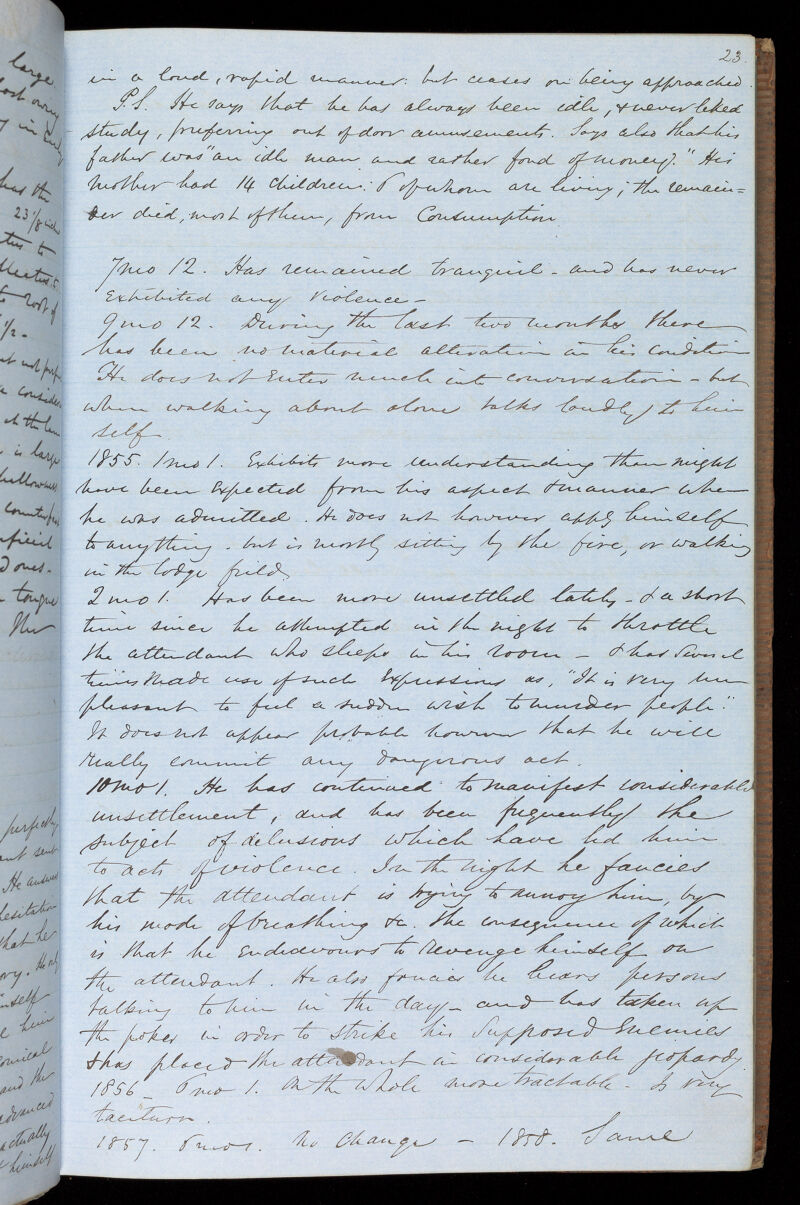 23.
in a loud, rapid manner: but ceases on being approached.
P.S. He says that he has always been idle, & never liked
study, preferring out of door amusements. Says also that his
father was "an idle man and rather fond of money." His
mother had 14 children: 6 of whom are living; the remain=
der died, most of them, from Consumption
7mo 12. Has remained tranquil - and has never
exhibited any violence -
9mo 12. During the last two months there
has been no material alteration in his condition
He does not enter much into conversation - but
when walking about alone talks loudly to him
self
1855. 1mo 1. Exhibits more understanding than might
have been expected from his aspect & manner when
he was admitted. He does not however apply himself
to anything. but is mostly sitting by the fire, or walking
in the lodge field
2mo 1. Has been more unsettled lately - & a short
time since he attempted in the night to throttle
the attendant who sleeps in his room - & has several
times made use of such expressions as, "It is very un
pleasant to feel a sudden wish to murder people".
It does not appear probable however that he will
really commit any dangerous act.
10mo 1. He has continued to manifest considerable
unsettlement, and has been frequently the
subject of delusions which have led him
to acts of violence. In the night he fancies
that the attendant is trying to annoy him, by
his mode of breathing &c. the consequence of which
is that he endeavours to revenge himself on
the attendant. He also fancies he hears persons
talking to him in the day - and has taken up
the poker in order to strike his supposed enemies
& has placed the attendant in considerable jeopardy.
1856 - 6mo 1. On the whole more tractable. Is very
taciturn.
1857. 6mo 1. No change - 1858. Same
large
lost
in
has the
23 1/8 inches
to
root of
1/2 -
is large
tongue
The
perfectly
sent
He answers
hesitation
that he
himself
him
and the
advanced
actually
himself